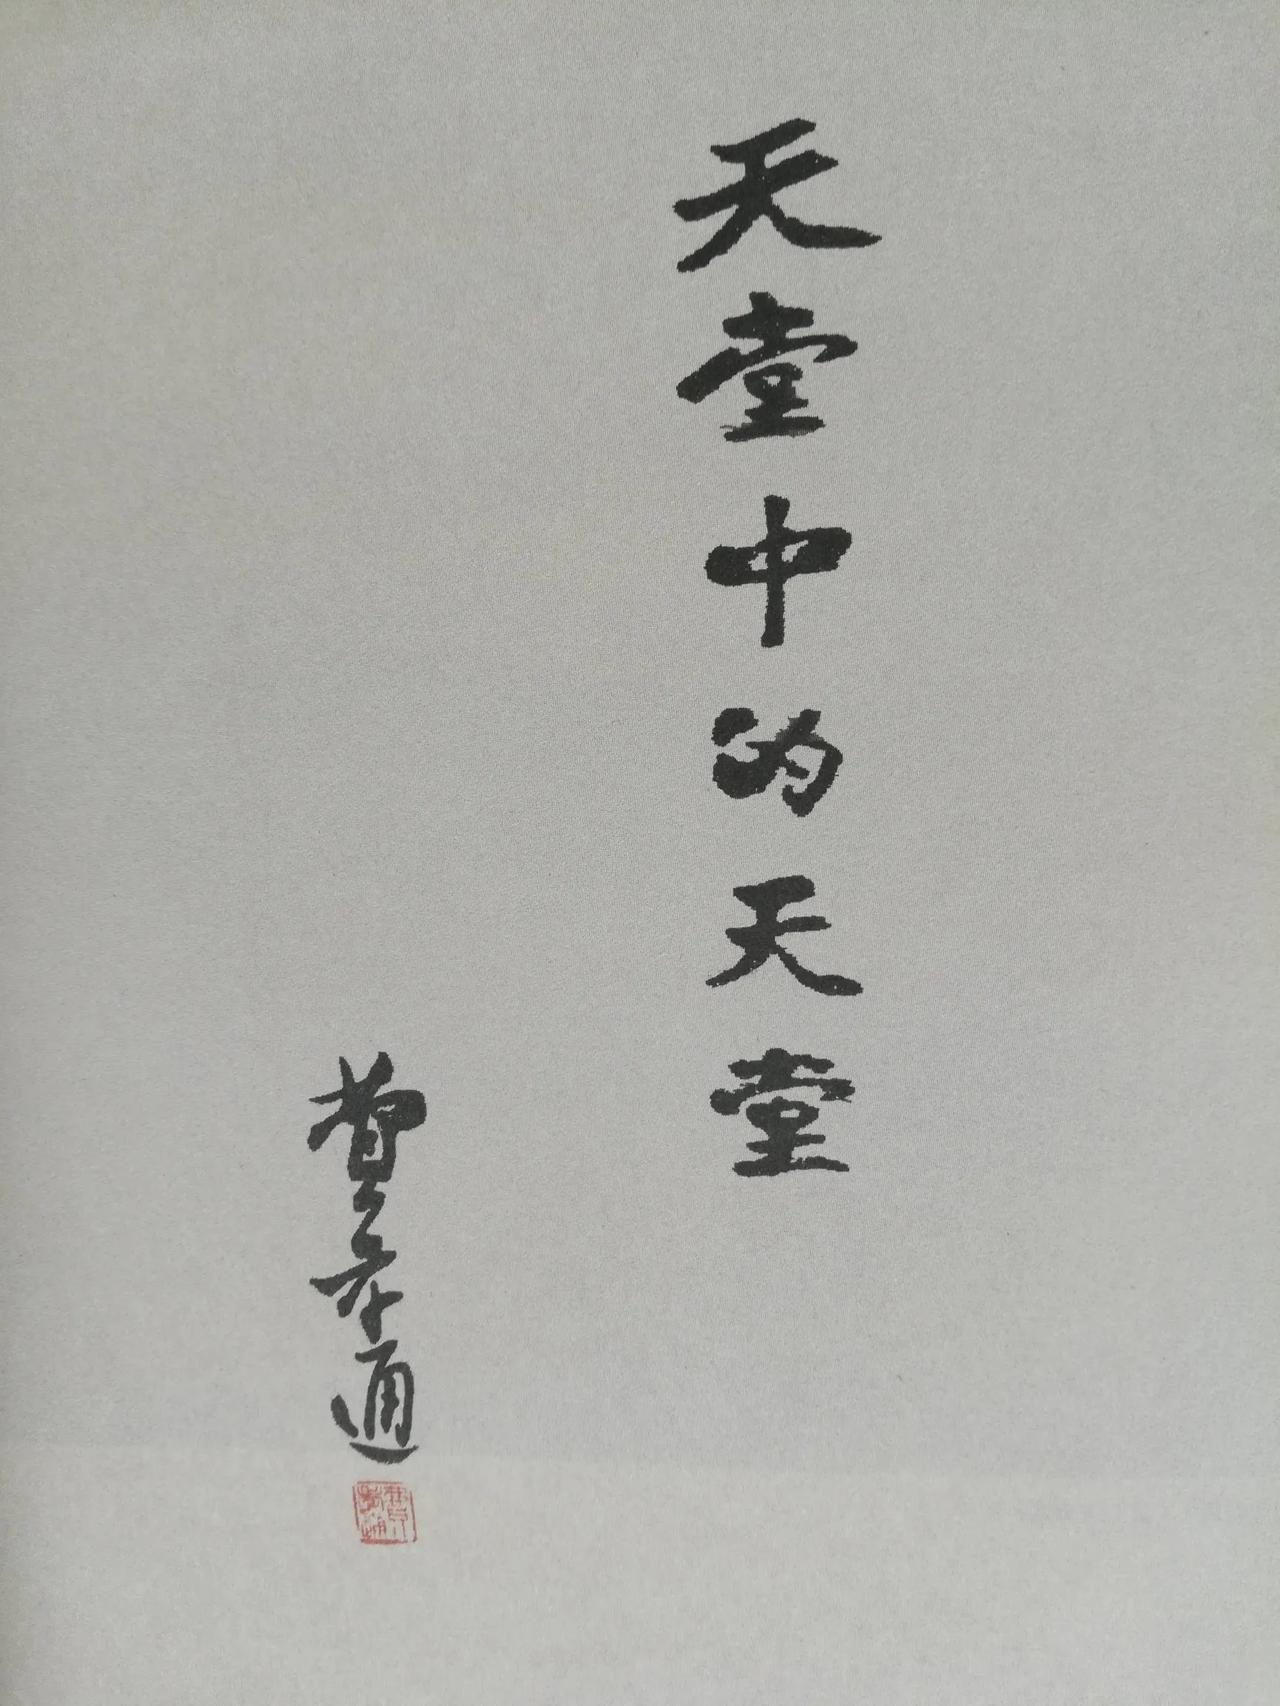 天堂中的天堂
费孝通